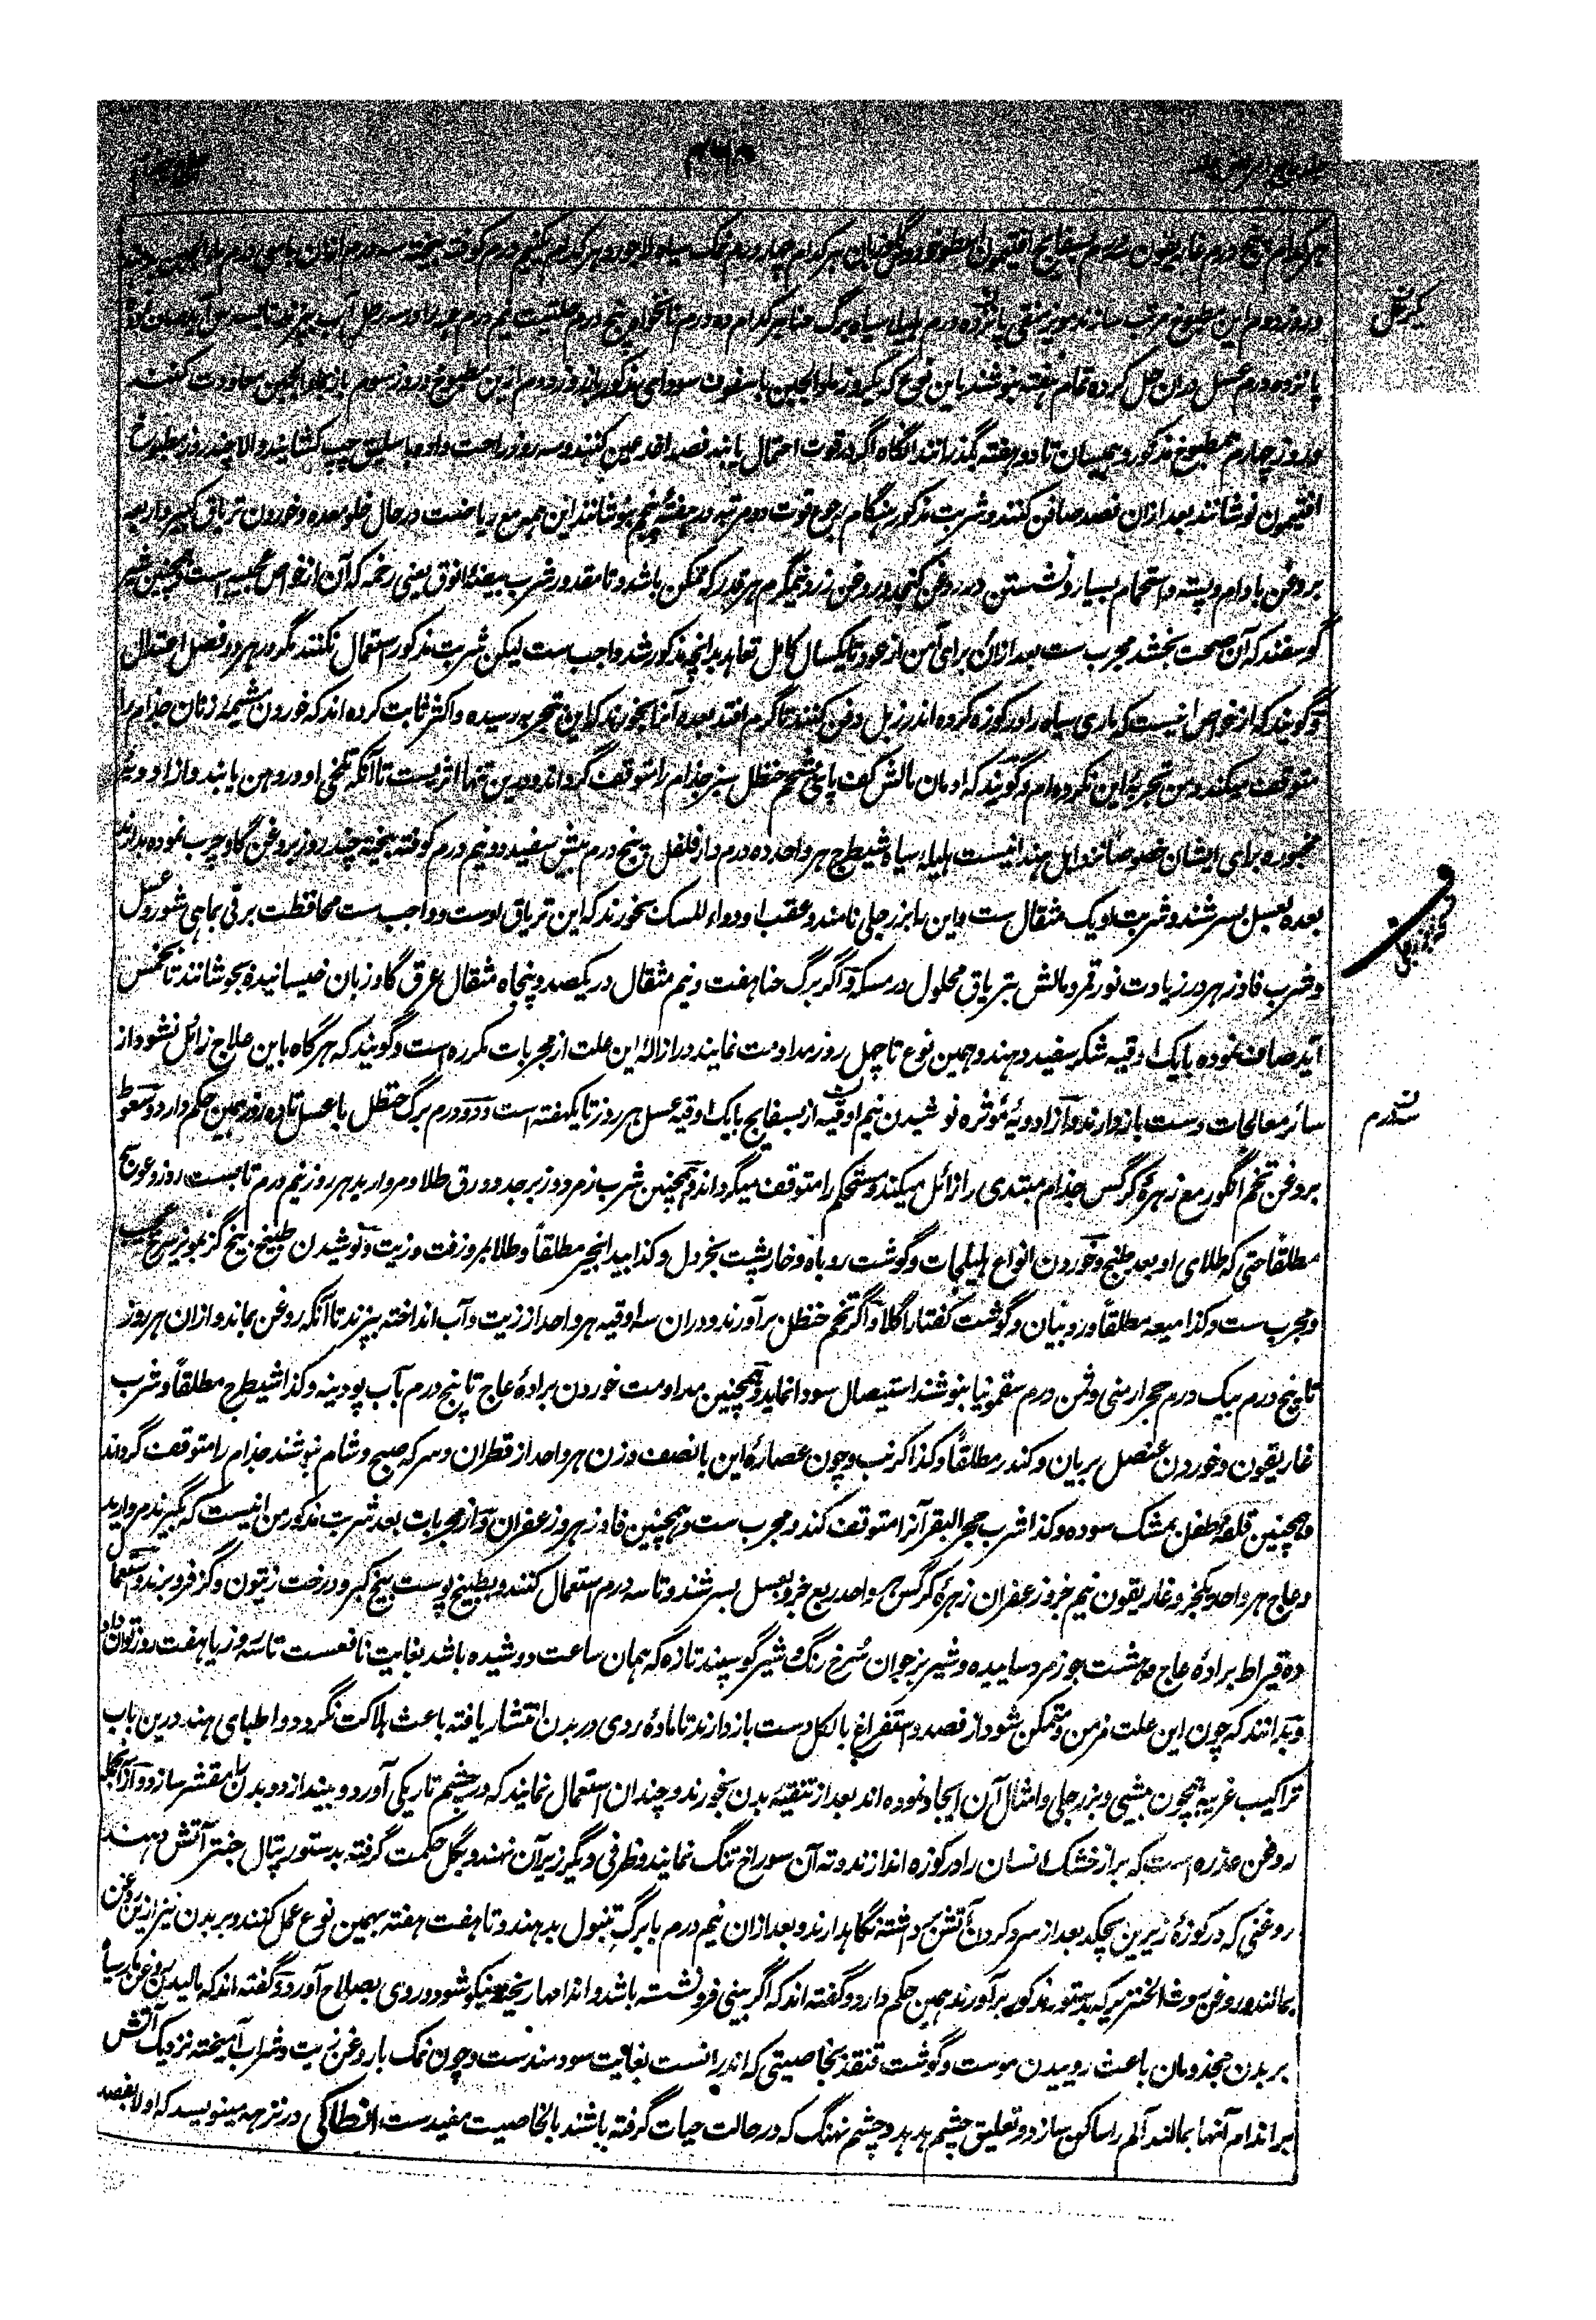 هر کدام پنج درم غاریقون سه درم بسفایج افتیمون اسطوخودوس گاوزبان هر کدام چهار درم نمک سیاه لاجورد هر کدام نیم درم کوفته بیخته سه درم ازان با سی درم ماء الجبن
و روز دوم این مطبوخ مرتب سازند مویز منقی پانزده درم هلیله سیاه برگ حنا هر کدام ده درم نانخواه پنج درم حلتیت نیم درم همه را در سه رطل آب بپزند
پانزده درم عسل دران حل کرده تمام هفته بنوشند باین نوع که یکروز ماء الجبن با سفوف سودای مذکور و روز دوم ازین مطبوخ و روز سوم باز بماء الجبن معاودت کنند
و روز چهارم مطبوخ مذکور و همچنان تا دو هفته بگذرانند آنگاه اگر در قوت احتمال یابند فصد اخدعین کنند و سه روز راحت داده باسلیق چپ کشایند و الا چند روز مطبوخ
افتیمون نوشانند بعد ازان فصد صافن کنند و شربت مذکور هنگام رجوع قوت دو مرتبه در هفته پنجم بنوشانند این همه مع ریاضت در حال خلو معده و خوردن تریاق کبیر و اربعه
بروغن بادام و پسته و استحمام بسیار و نشستن در روغن کنجد و روغن زرد نیمگرم هر قدر که ممکن باشد و تا مقدور شرب بیضه انوق یعنی رخمه که آن از خواص عجیبه است و همچنین شیر
گوسفند که آن صحت بخشد مجرب ست بعد ازان برای امن از عود تا یکسال کامل تعاهد بدانچه مذکور شد واجب ست لیکن شربت مذکور استعمال نکنند مگر در هر دو فصل اعتدال
و گویند که از خواص اینست که باری سیاه را در کوزه کرده اندر زبل دفن کنند تا کرم افتد بعده آنرا بخورند که این بتجربه رسیده و اکثر ثابت کرده اند که خوردن مشیمه زنان جذام را
متوقف میکند و من تجربه این نکرده ام و گویند که ادمان مالش کف پا بشحم حنظل سبز جذام را متوقف گرداند و درین تنها اثریست تا آنکه تلخی او در دهن یابند و از ادویه
مخبوره برای ایشان خصوصاً نزد اهل هند اینست هلیله سیاه شیطرج هر واحد ده درم دارفلفل پنج درم بیش سفید دو نیم درم کوفته بیخته چند روز بروغن گاو چرب نموده بدارند
بعده بعسل بسرشند و شربت او یک مثقال ست و این را بزرجلی نامند و عقب او دواء المسک بخورند که این تریاق اوست و واجب ست محافظت بر قی بماهی شور و عسل
و شرب فادزهر در زیادت نور قمر و مالش بتریاق محلول در مسکه و اگر برگ حنا هفت و نیم مثقال در یکصد و پنجاه مثقال عرق گاوزبان خیسانیده بجوشانند تا بخمس
آید صاف نموده با یک اوقیه شکر سفید دهند و همین نوع تا چهل روز مداومت نمایند در ازاله این علت از مجربات مکرره است و گویند که هر گاه باین علاج زائل نشود از
سائر معالجات دست بازدارند و از ادویه مؤثره نوشیدن نیم اوقیه از بسفایج با یک اوقیه عسل هر روز تا یکهفته است و دو درم برگ حنظل با عسل تا ده روز همین حکم دارد و سعوط
بروغن تخم انگور مع زهره کرگس جذام مبتدی را زائل میکند و مستحکم را متوقف میگرداند و همچنین شرب زمرد و زبرجد و ورق طلا و مروارید هر روز نیم درم تا بیست روز و عوسج
مطلقاً حتی که طلای او بعد طبخ و خوردن انواع هلیلجات و گوشت روباه و خارپشت بخردل و کذا بیدانجیر مطلقاً و طلا بر زفت و زیت و نوشیدن طبیخ بیخ گز بمویز
و مجرب ست و کذا میعه مطلقاً و روبیان و گوشت کفتار اکلا و اگر تخم حنظل برآورند و دران سه اوقیه هر واحد از زیت و آب انداخته بپزند تا آنکه روغن بماند و ازان هر روز
تا پنج درم بیک درم حجر ارمنی و ثمن درم سقمونیا بنوشند استیصال سودا نماید و همچنین مداومت خوردن براده عاج تا پنج درم بآب پودینه و کذا شیطرج مطلقاً و شرب
غاریقون و خوردن عنصل بریان و کندر مطلقاً و کذا کرنب و چون عصاره این با نصف وزن هر واحد از قطران و سرکه صبح و شام بنوشند جذام را متوقف گرداند
و همچنین قلفه طفل بمشک سوده و کذا شرب حجر البقر آنرا متوقف کند و مجرب ست و همچنین فادزهر و زعفران و از مجربات بعد شربت مذکور من اینست که بگیرند مروارید
و عاج هر واحد یکجزو غاریقون نیم جزو زعفران زهره کرگس هر واحد ربع جزو بعسل بسرشند و تا سه درم استعمال کنند و بطبیخ پوست بیخ کبر و درخت زیتون و گز فرو برند و استعمال
ده قیراط براده عاج و هشت جو زمرد سائیده و شیر بز جوان سرخ رنگ و شیر گوسپند تازه که همان ساعت دوشیده باشد بغایت نافعست تا سه روز یا هفت روز توان داد
و بدانند که چون این علت مزمن و متمکن شود از فصد و استفراغ بالکل دست بازدارند تا ماده ردی در بدن انتشار یافته باعث هلاکت نگردد و اطبای هند درین باب
تراکیب غریبه همچون بیشی و بزرجلی و امثال آن ایجاد نموده اند بعد از تنقیه بدن بخورند و چندان استعمال نمایند که در چشم تاریکی آورد و بیندازد و بدن را مقشر سازد و از انجمله
روغن عذره است که براز خشک انسان را در کوزه اندازند و ته آن سوراخ تنگ نمایند و ظرفی دیگر زیر آن نهند و بگل حکمت گرفته بدستور پتال جنتر آتش دهند
روغنی که در کوزه زیرین بچکد بعد از سرد کردن آتش برداشته نگاهدارند و بعد ازان نیم درم با برگ تنبول بدهند و تا هفت هفته بهمین نوع عمل کنند و بر بدن نیز ازین روغن
بمالند و روغن روث الخنزیر که بدستور مذکور برآورند همین حکم دارد و گفته اند که اگر بینی فرونشسته باشد و اندامها ریخته نیکو شود و روی بصلاح آورد و گفته اند که مالیدن روغن مار سیاه
بر بدن مجذومان باعث روییدن موست و گوشت قنفذ بخاصیتی که اندر انست بغایت سودمندست و چون نمک با روغن زیت و شراب آمیخته نزدیک آتش
بر اندام آنها بمالند الم را ساکن سازد و تعلیق چشم هدهد و چشم نهنگ که در حالت حیات گرفته باشند بالخاصیت مفیدست انطاکی در نزهه مینویسد که اولا بفصد